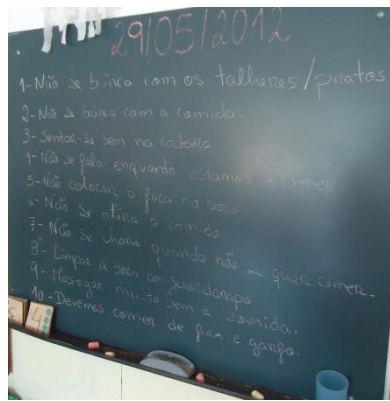 29/05/2012
1-Não se brinca com os talheres/pratos
2-Não se brinca com a comida.
3-Sentar-se bem na cadeira
4-Não se fala enquanto estamos a comer
5-Não colocar a faca na boca
6-Não se atira a comida
7-Não se chora quando não se quer comer.
8-Limpar a boca ao guardanapo
9-Mastigar muito bem a comida.
10-Devemos comer de faca e garfo.
4